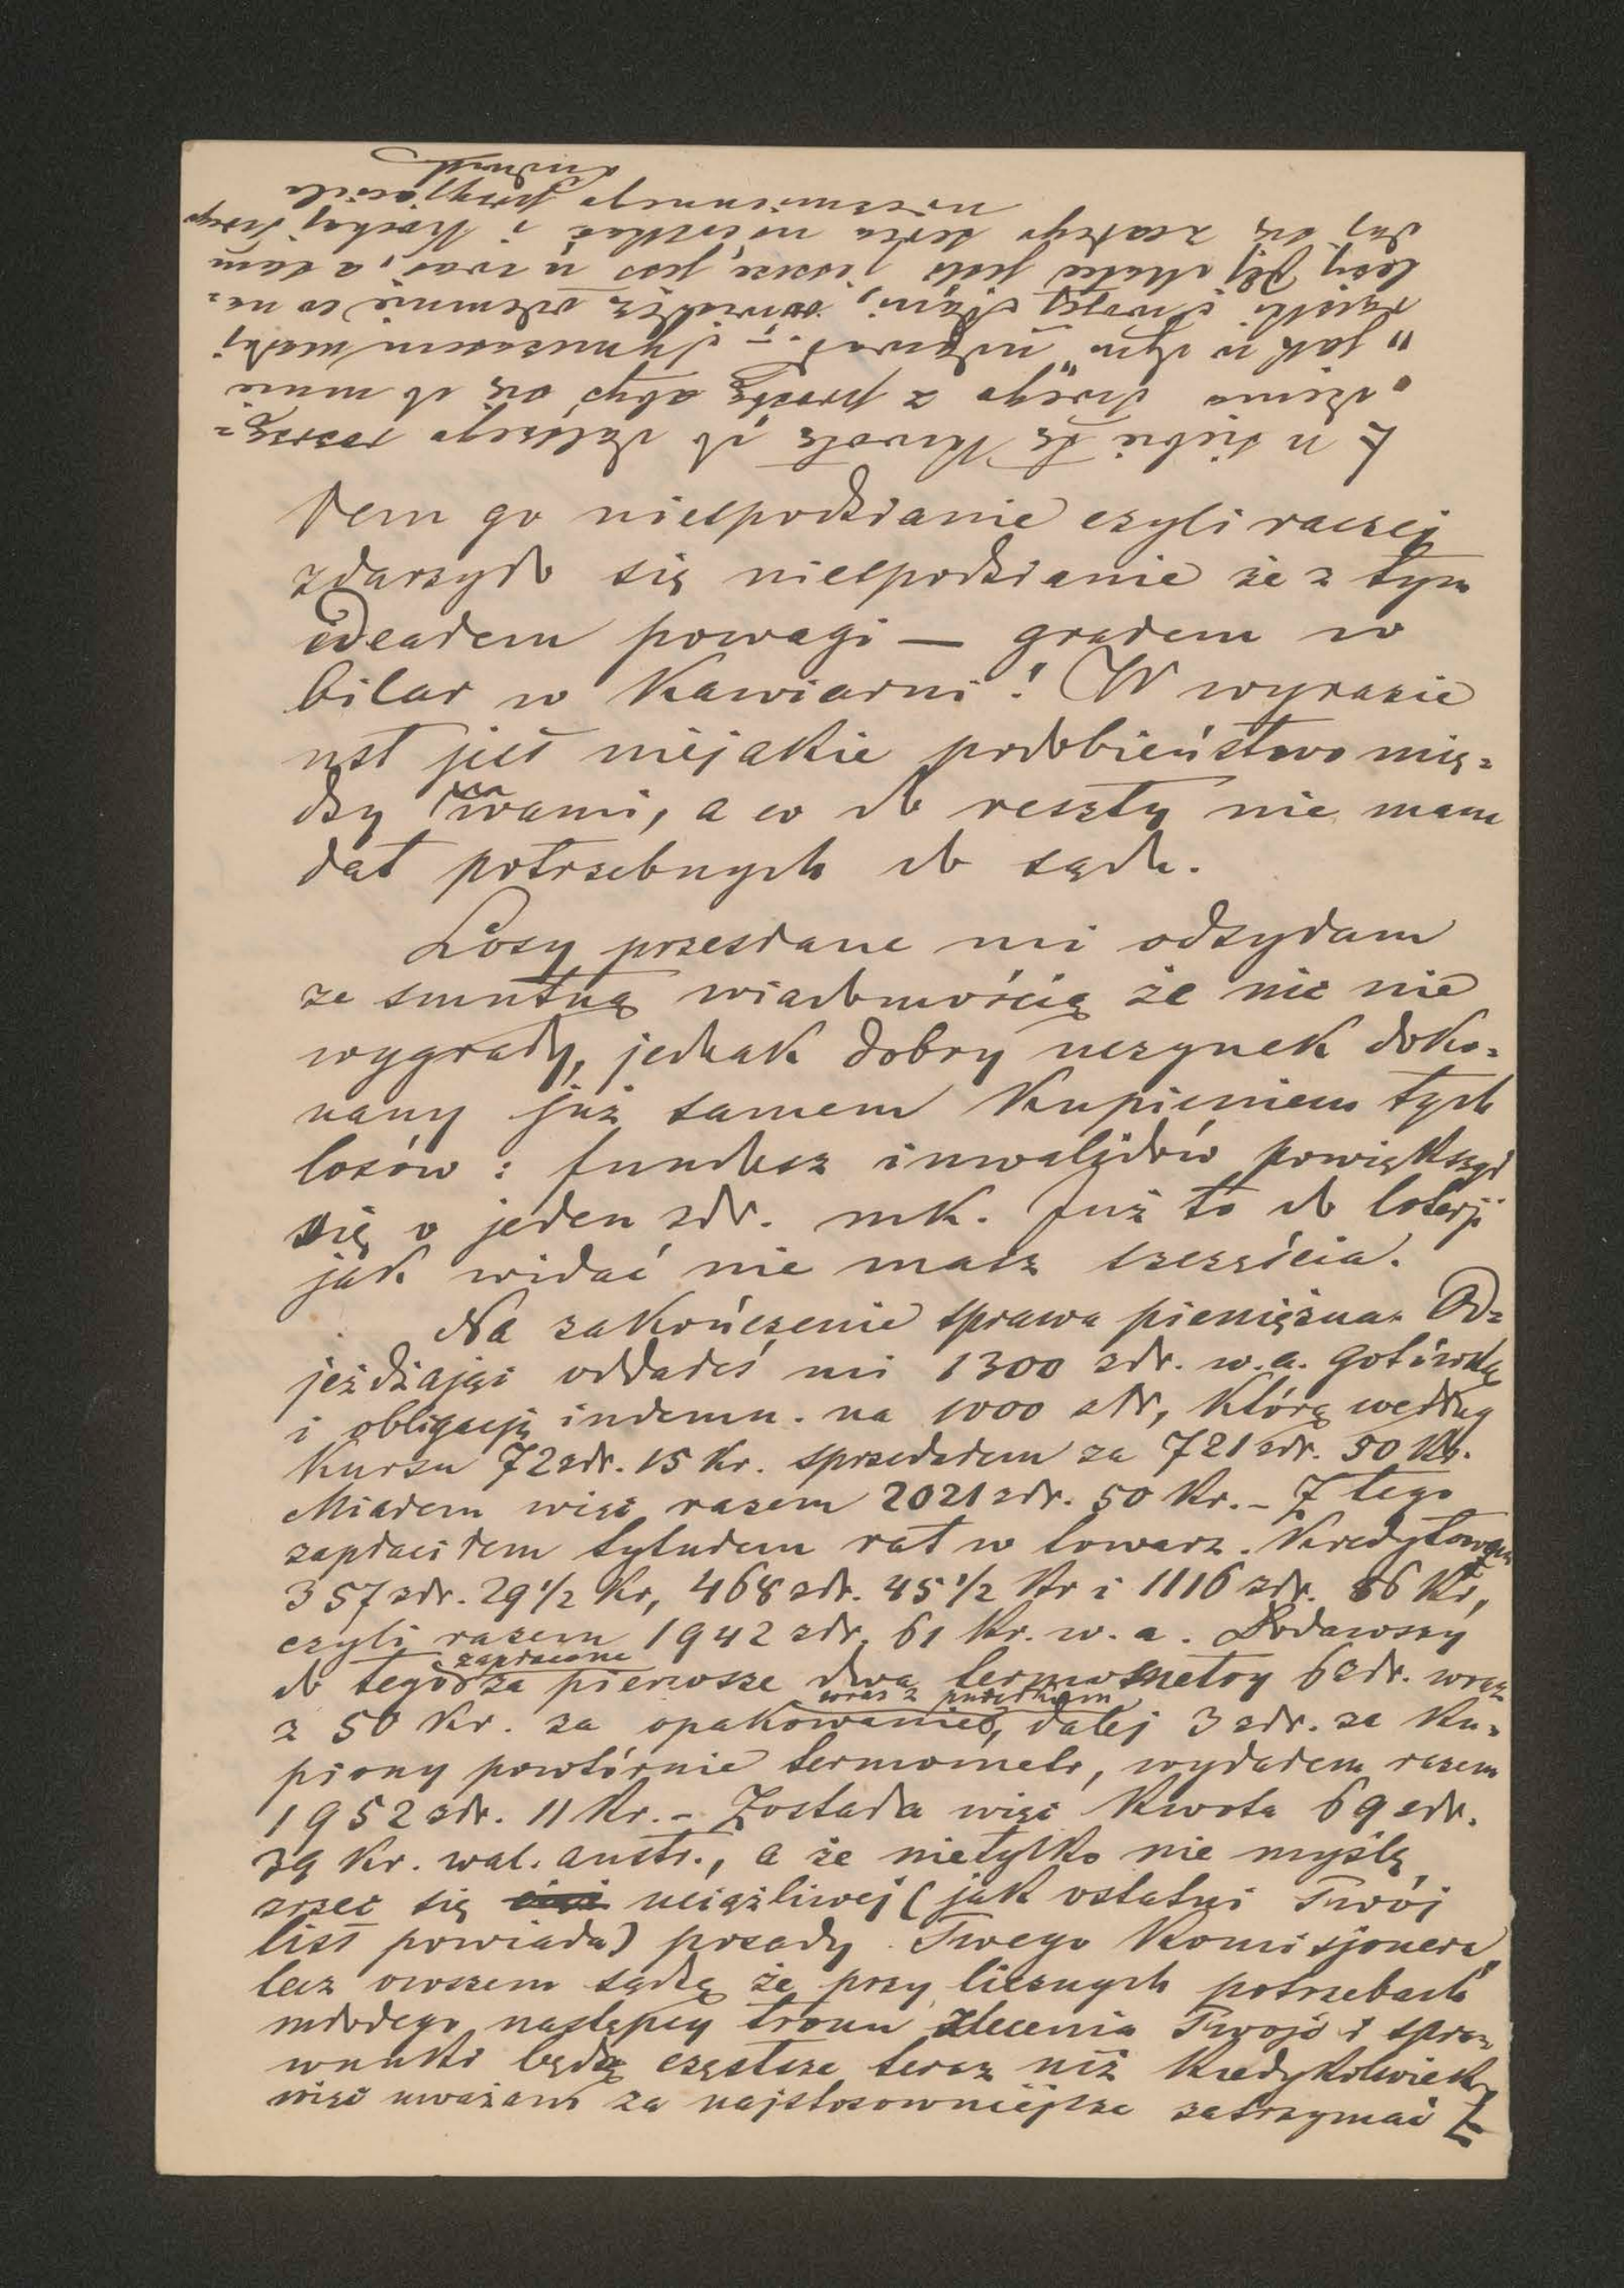 łem go niespodzianie czyli raczej
zdarzyło się niespodzianie że z tym
ideałem powagi — grałem w
bilar w Kawiarni! W wyrazie
ust jest niejakie podobieństwo mię=
dzy wami, a co do reszty nie mam
dat potrzebnych do sądu.
Losy przesłane mi odsyłam
ze smutną wiadomością że nic nie
wygrały, jednak dobry uczynek doko=
nany już samem Kupieniem tych
losów: fundusz inwalidów powiększył
się o jeden złr. mk. Już to do loterji
jak widać nie masz szczęścia.
Na zakończenie sprawa pieniężna. Od=
jeżdżając oddałeś mi 1300 złr. w.a. gotówką
i obligację indemn. na 1000 złr, którą według
Kursu 72 złr. 15 Kr. sprzedałem za 721 złr. 50 Kr.
Miałem więc razem 2021 złr. 50 Kr. – Z tego
zapłaciłem tytułem rat w towarz. Kredytowym
357 złr. 29 1/2 Kr, 468 złr. 45 1/2 Kr i 1116 złr. 86 Kr,
czyli razem 1942 złr. 61 Kr. w. a. Dodawszy
do tego zapłacone za pierwsze dwa termometry 6 złr. wraz
z 50 Kr. za opakowanie wraz z pudełkiem, dalej 3 złr. za Ku=
piony powtórnie termometr, wydałem razem
1952 złr. 11 Kr. – Została więc Kwota 69 złr.
39 Kr. wal. austr., a że nietylko nie myślę
zrzec się uciążliwej (jak ostatni Twój
list powiada) posady Twego Komisjonera,
lecz owszem sądzę że przy licznych potrzebach
młodego następcy tronu zlecenia Twoje i spra=
wunki będą częstsze teraz niż Kiedykolwiek
więc uważam za najstosowniejsze zatrzymać
u siebie tę Kwotę do dalszego rozrzą=
dzenia Twego z prośbą abyś się do mnie
"jak w dym" udawał. – Tymczasem uściskaj
rączki Twojej Pani, odemnie co na=
leży Jéj Matce jeśli jeszcze jest u was, a sam
daj się z całego serca uściskać i Kochaj swego
niezmiennego przyjaciela
Ludwik